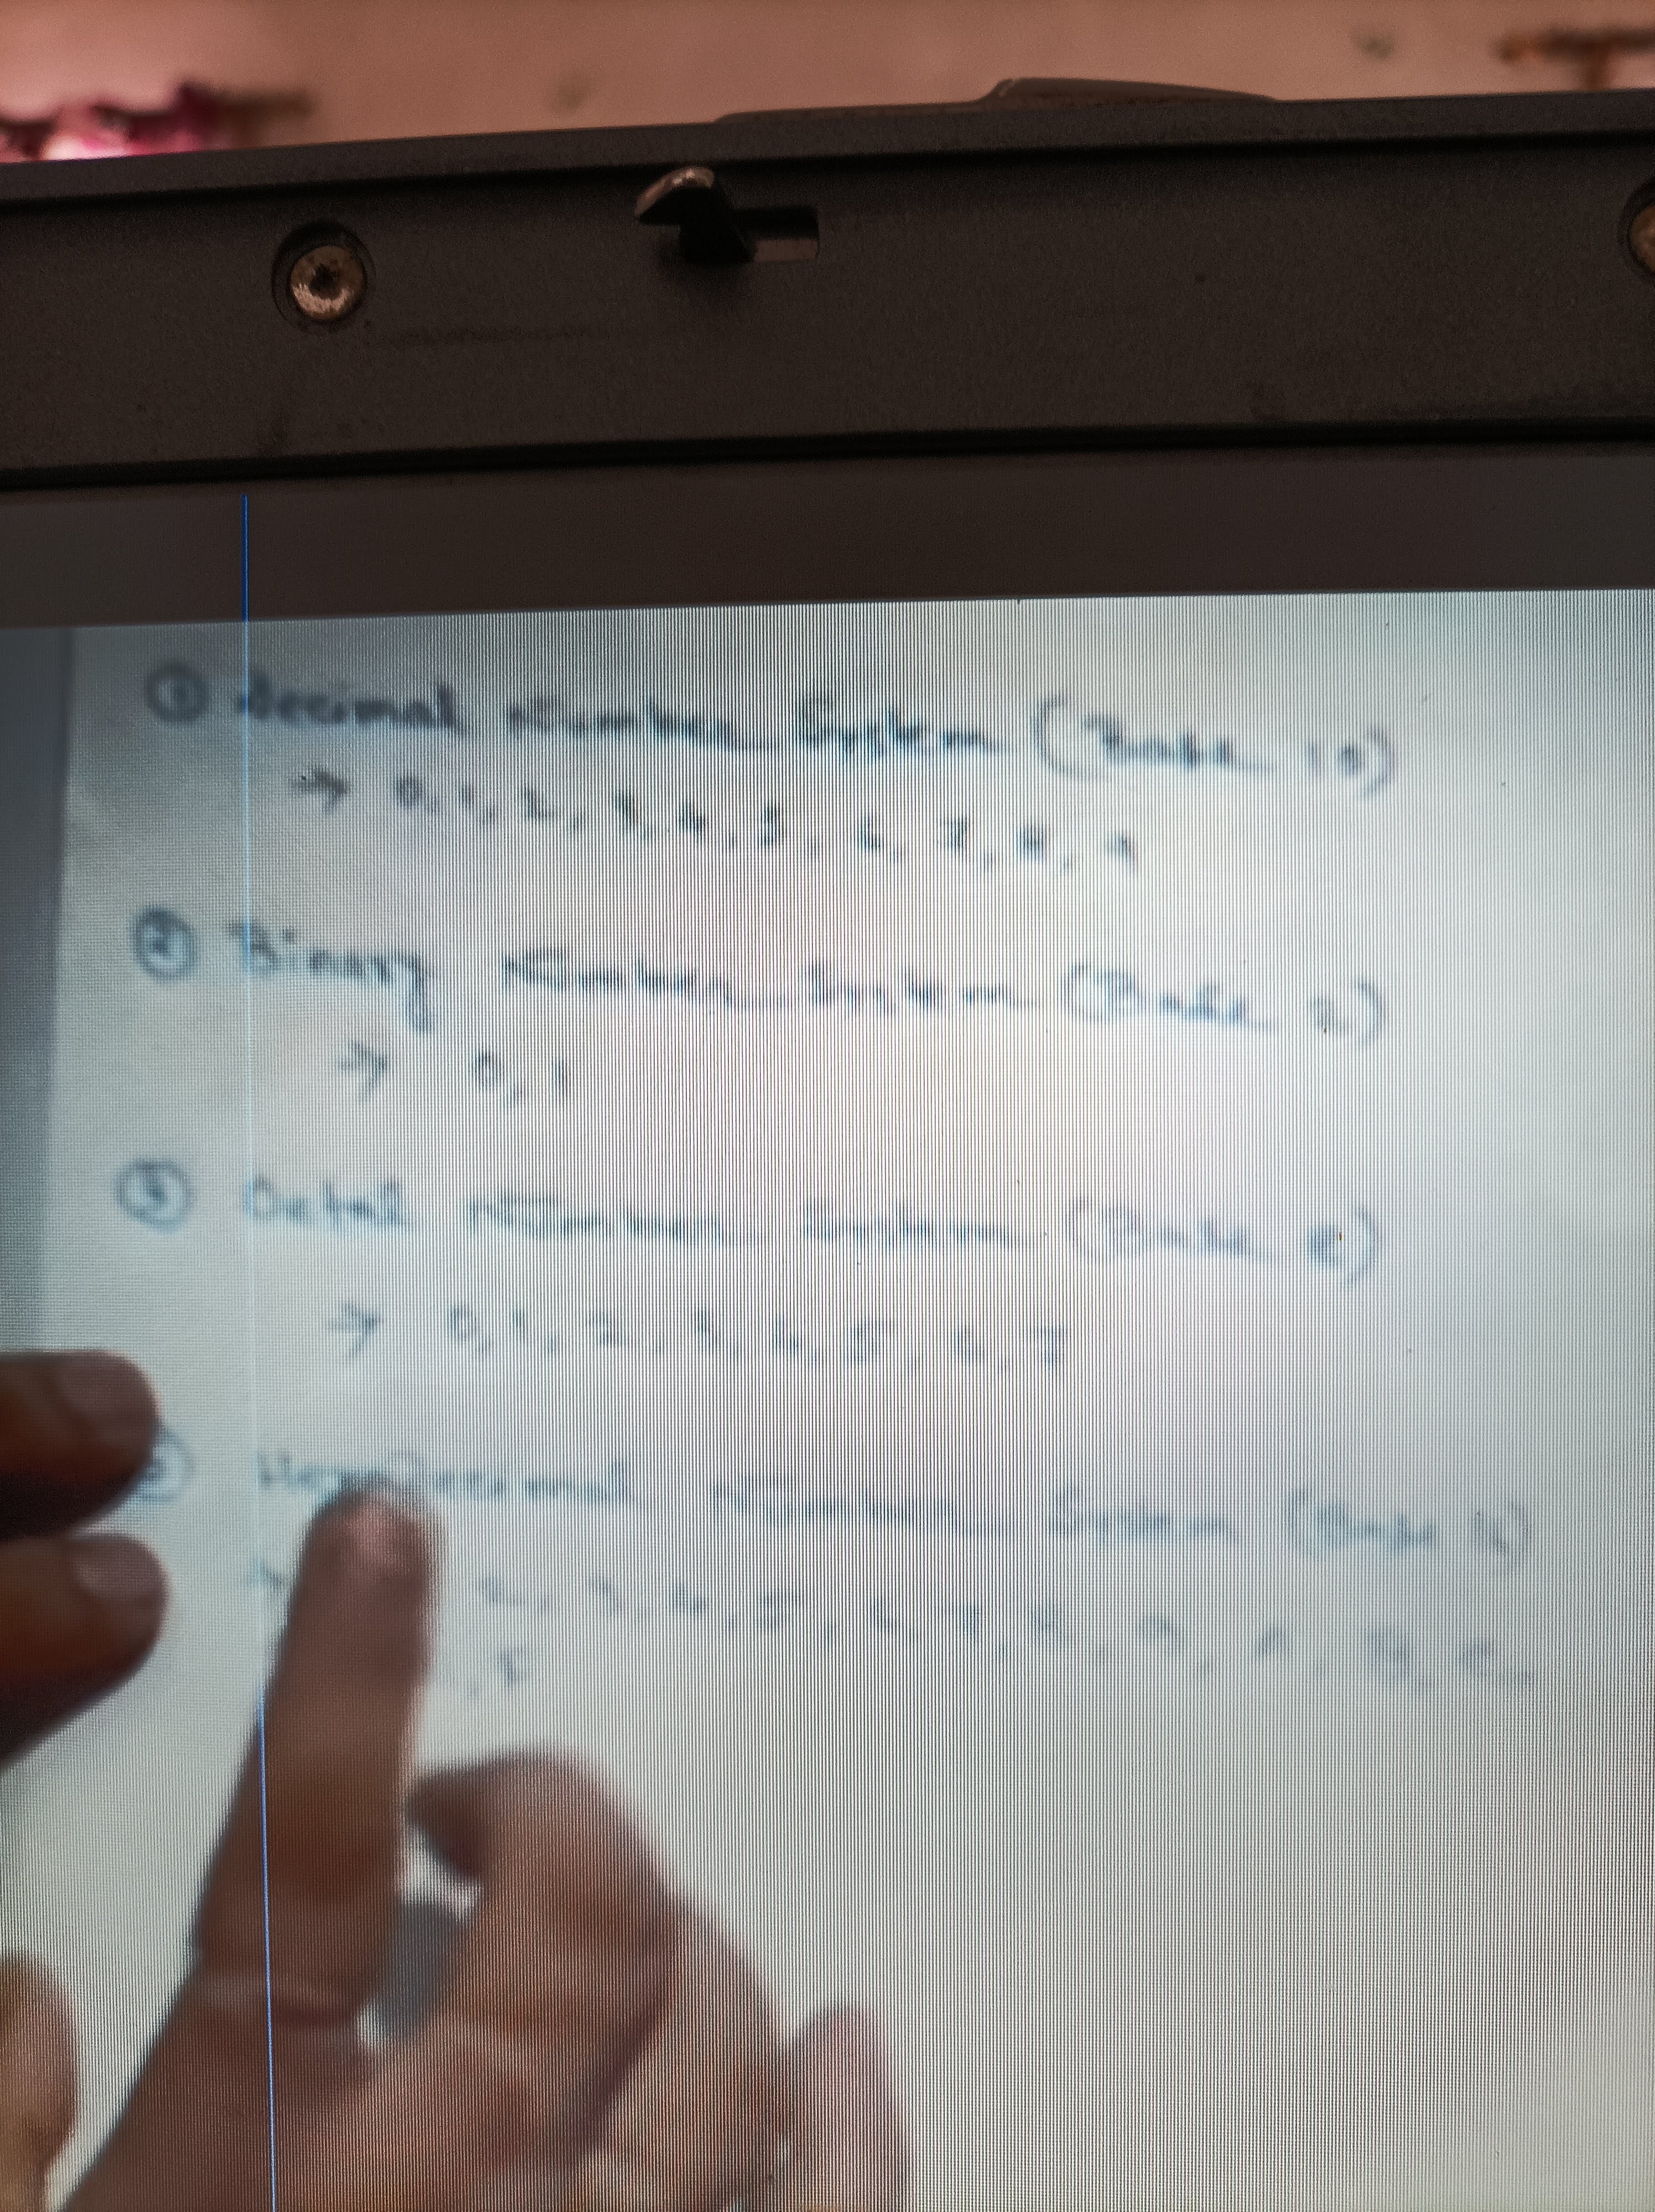 ① Decimal Number System (Base 10)
→ 0, 1, 2, 3, 4, 5, 6, 7, 8, 9
② Binary Number System (Base 2)
→ 0, 1
③ Octal Number System (Base 8)
→ 0, 1, 2, 3, 4, 5, 6, 7
HexaDecimal Number System (Base 16)
2, 3, 4, 5, 6, 7, 8, 9, A, B, C,
, F